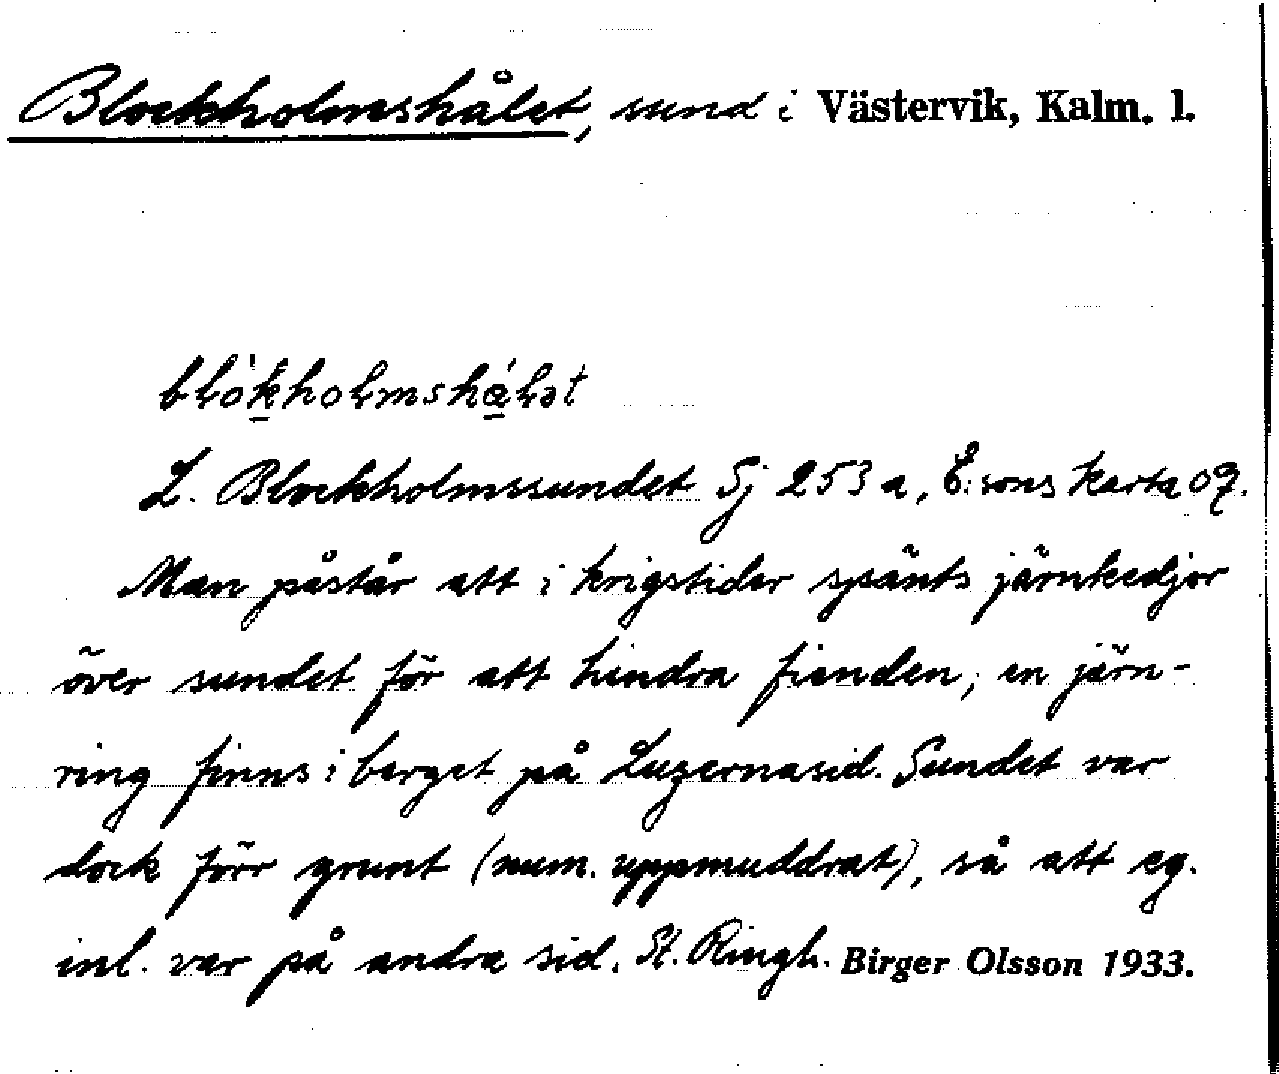 Blockholmshålet, sund i Västervik, Kalm. l.
blo̍kholmshålət
L. Blockholmssundet Sj 253 a, E:sons karta 09.
Man påstår att i krigstider spänts järnkedjor
över sundet för att hindra fienden, en järn-
ring finns i berget på Luzernasid. Sundet var
dock förr grunt (num. uppmuddrat), så att eg.
inl. var på andra sid. St. Ringh. Birger Olsson 1933.